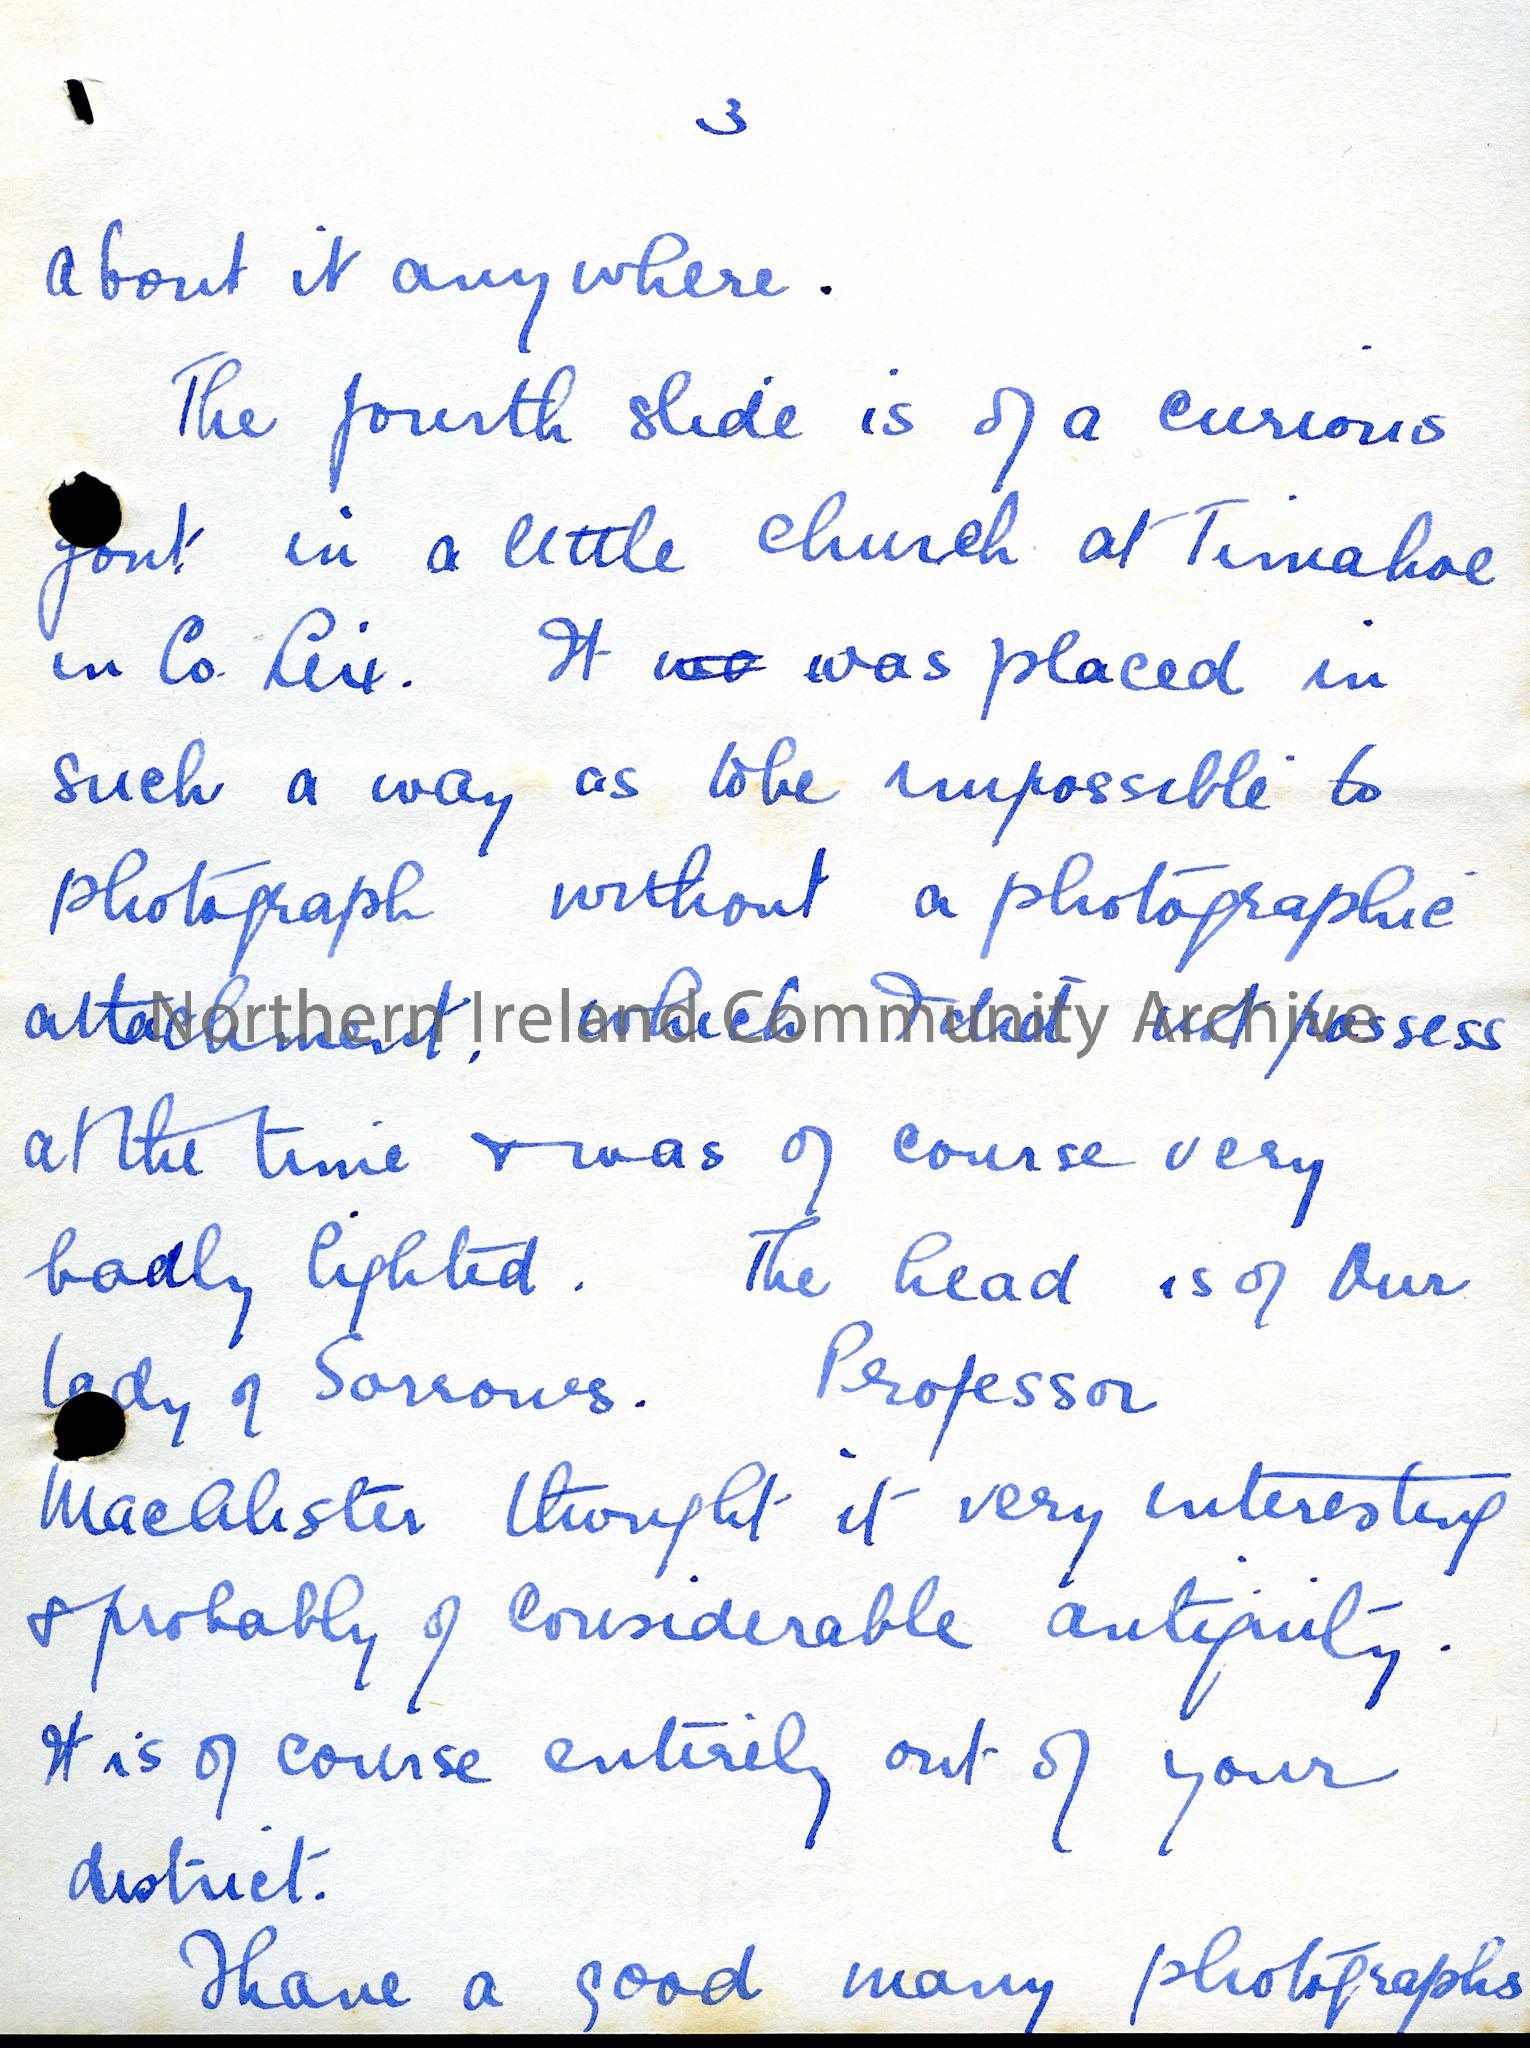 3
about it anywhere.
The fourth slide is of a curious
font in a little church at Timahoe
in Co. Leix. It wa was placed in
such a way as to be impossible to
photograph without a photographic
attachment, which I did not possess
Northern Ireland Community Archive
at the time & was of course very
badly lighted. The head is of Our
Lady of Sorrows. Professor
MacAlister thought it very interesting
& probably of considerable antiquity.
It is of course entirely out of your
district.
I have a good many photographs